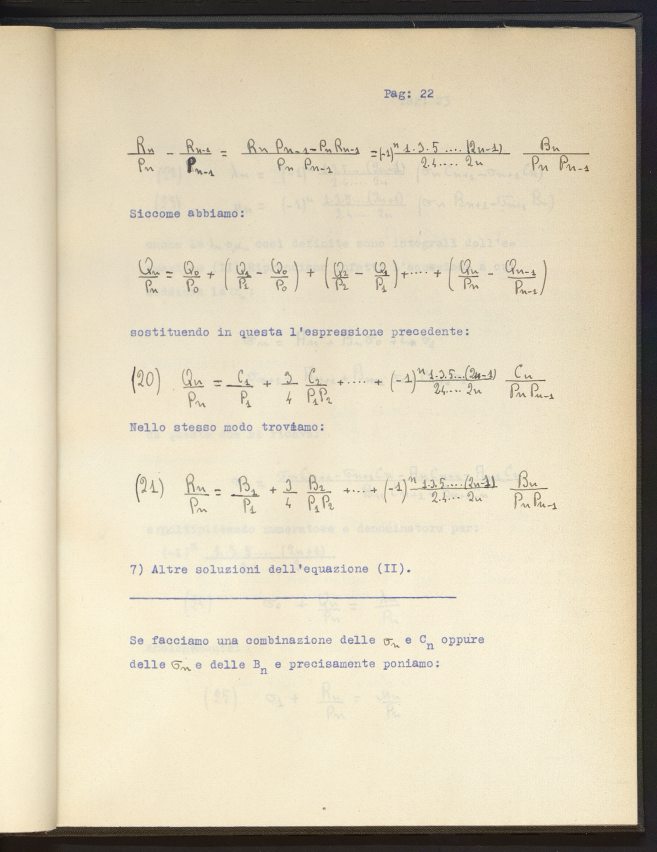 Pag: 22
Rn/Pn - Rn-1/Pn-1 = Rn Pn-1 - Pn Rn-1 / Pn Pn-1 = (-1)^n 1.3.5....(2n-1) / 2.4..... 2n Bn / Pn Pn-1
Siccome abbiamo:
Qn/Pn = Q0/P0 + (Q1/P1 - Q0/P0) + (Q2/P2 - Q1/P1) +....+ (Qn/Pn - Qn-1/Pn-1)
sostituendo in questa l'espressione precedente:
(20) Qn/Pn = C1/P1 + 3/4 C2/P1P2 +....+ (-1)^n 1.3.5....(2n-1) / 2.4.... 2n Cn / PnPn-1
Nello stesso modo troviamo:
(21) Rn/Pn = B1/P1 + 3/4 B2/P1P2 +...+ (-1)^n 1.3.5....(2n-1) / 2.4... 2n Bn / PnPn-1
7) Altre soluzioni dell'equazione (II).
Se facciamo una combinazione delle σn e Cn oppure
delle σn e delle Bn e precisamente poniamo: